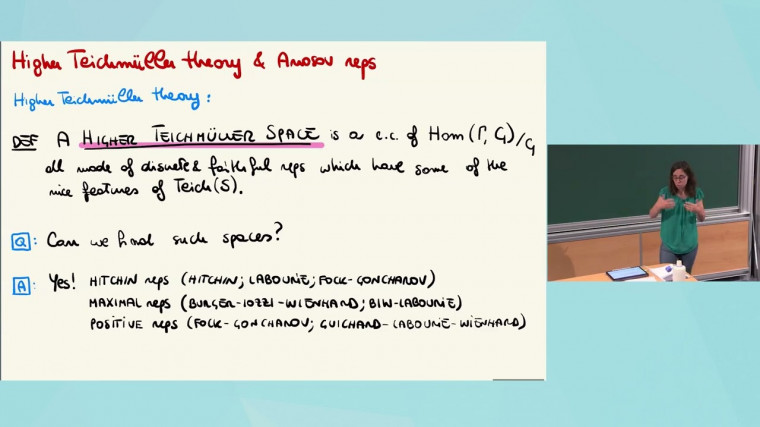 Higher Teichmüller theory & Anosov reps
Higher Teichmüller theory:
DEF A HIGHER TEICHMÜLLER SPACE is a c.c. of Hom(Γ, G)/G
all made of discrete & faithful reps which have some of the
nice features of Teich(S).
Q: Can we find such spaces?
A: Yes! HITCHIN reps (HITCHIN; LABOURIE; FOCK-GONCHAROV)
MAXIMAL reps (BURGER-IOZZI-WIENHARD; BIW-LABOURIE)
POSITIVE reps (FOCK-GONCHAROV; GUICHARD-LABOURIE-WIENHARD)